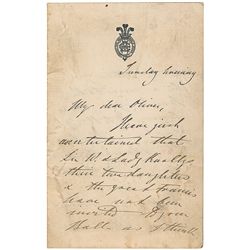 Sunday evening
My dear Oliver,
I have just
ascertained that
Sir W. & Lady Knollys
their two daughters
& the good Francis
have not been
invited to your
Ball as I think